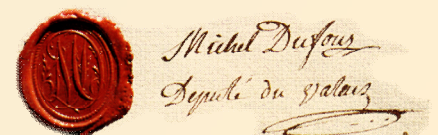 Michel Dufour
Deputé du Valais